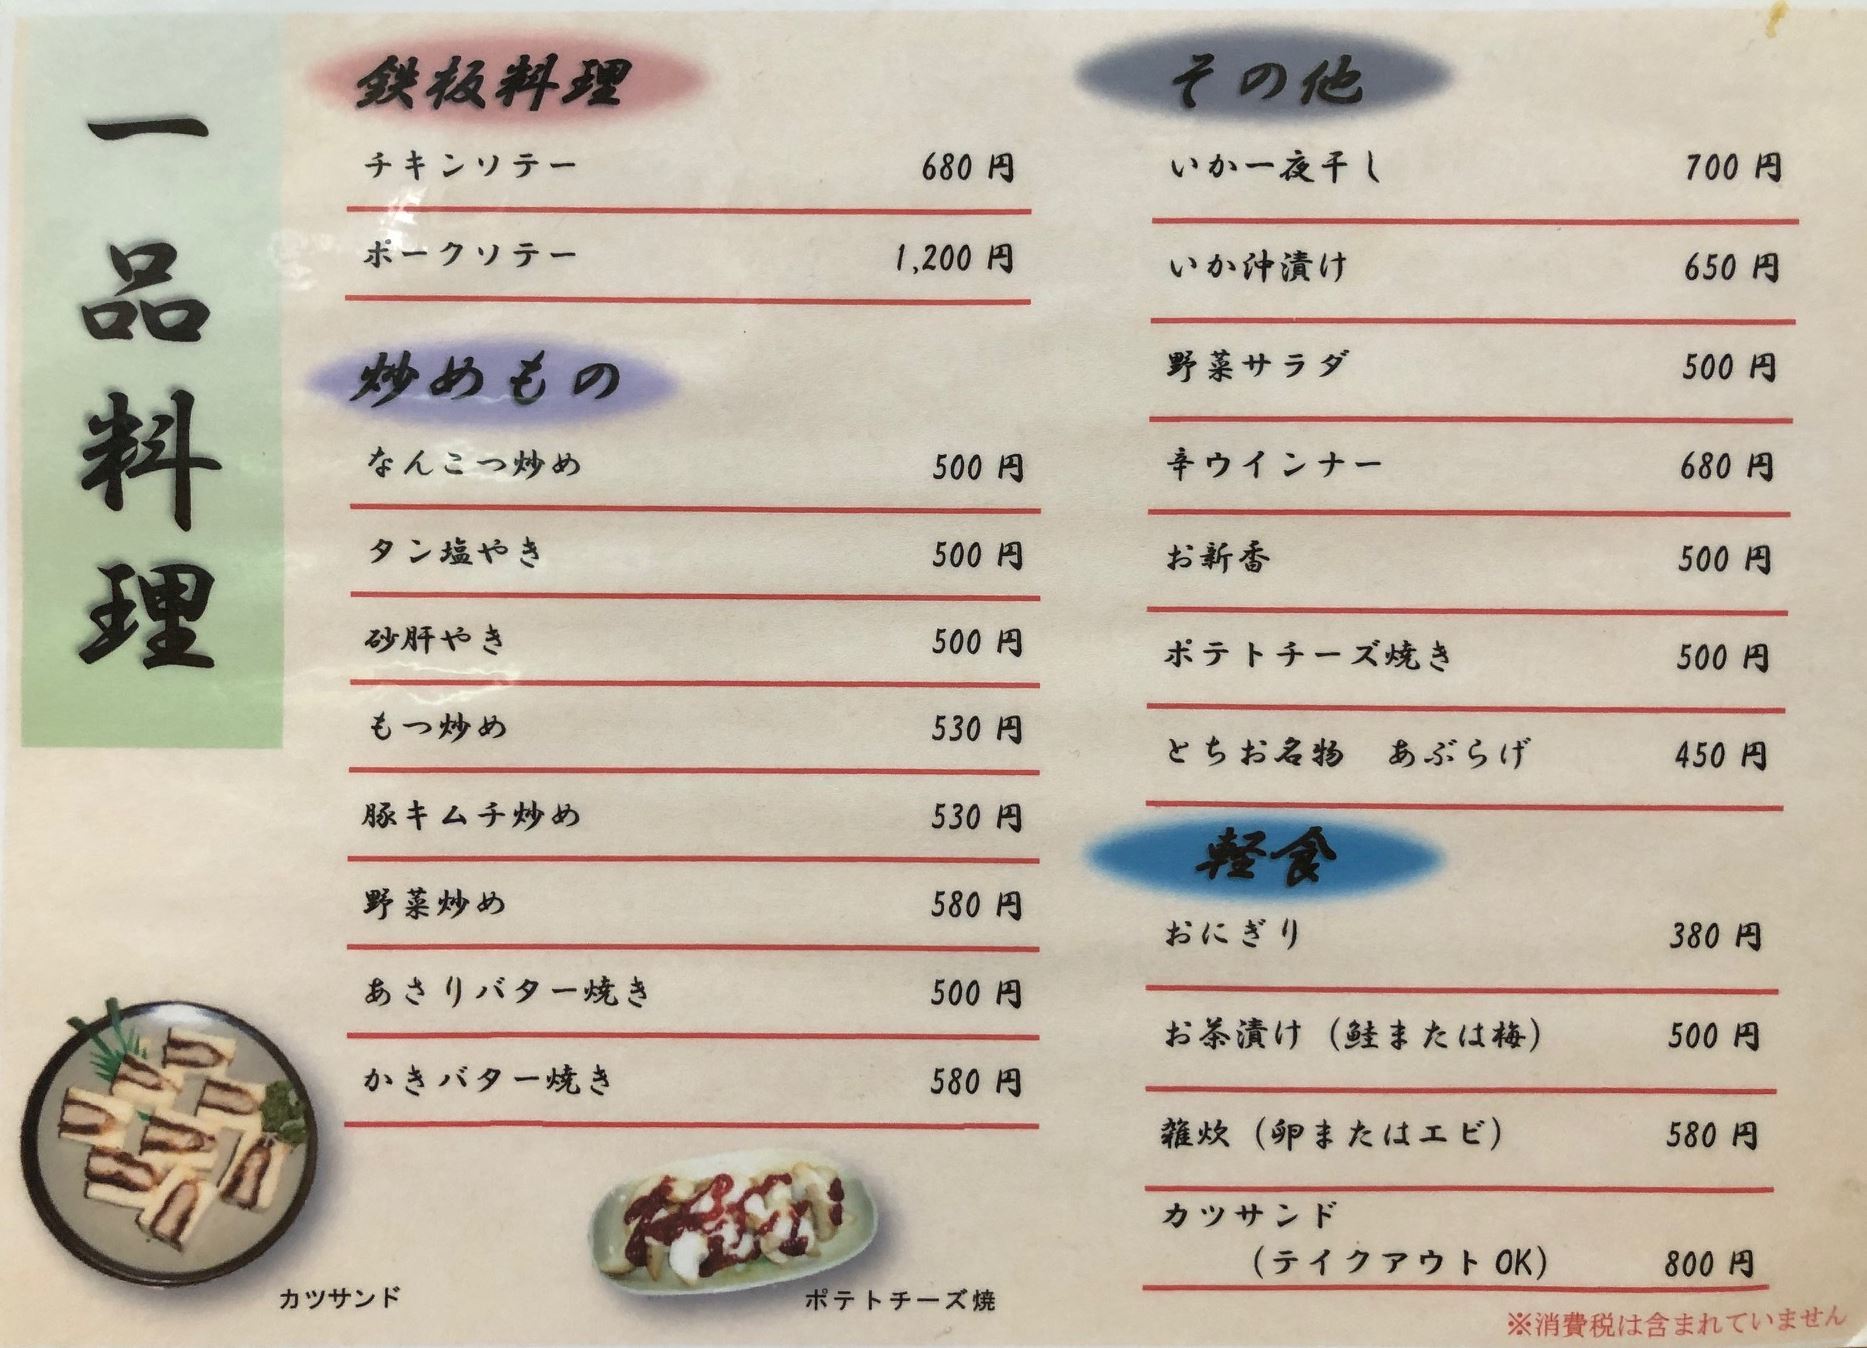 一品料理
鉄板料理
チキンソテー 680 円
ポークソテー 1,200 円
炒めもの
なんこつ炒め 500 円
タン塩やき 500 円
砂肝やき 500 円
もつ炒め 530 円
豚キムチ炒め 530 円
野菜炒め 580 円
あさりバター焼き 500 円
かきバター焼き 580 円
カツサンド
ポテトチーズ焼
その他
いか一夜干し 700 円
いか沖漬け 650 円
野菜サラダ 500 円
辛ウインナー 680 円
お新香 500 円
ポテトチーズ焼き 500 円
とちお名物 あぶらげ 450 円
軽食
おにぎり 380 円
お茶漬け（鮭または梅） 500 円
雑炊（卵またはエビ） 580 円
カツサンド
（テイクアウト OK） 800 円
※消費税は含まれていません